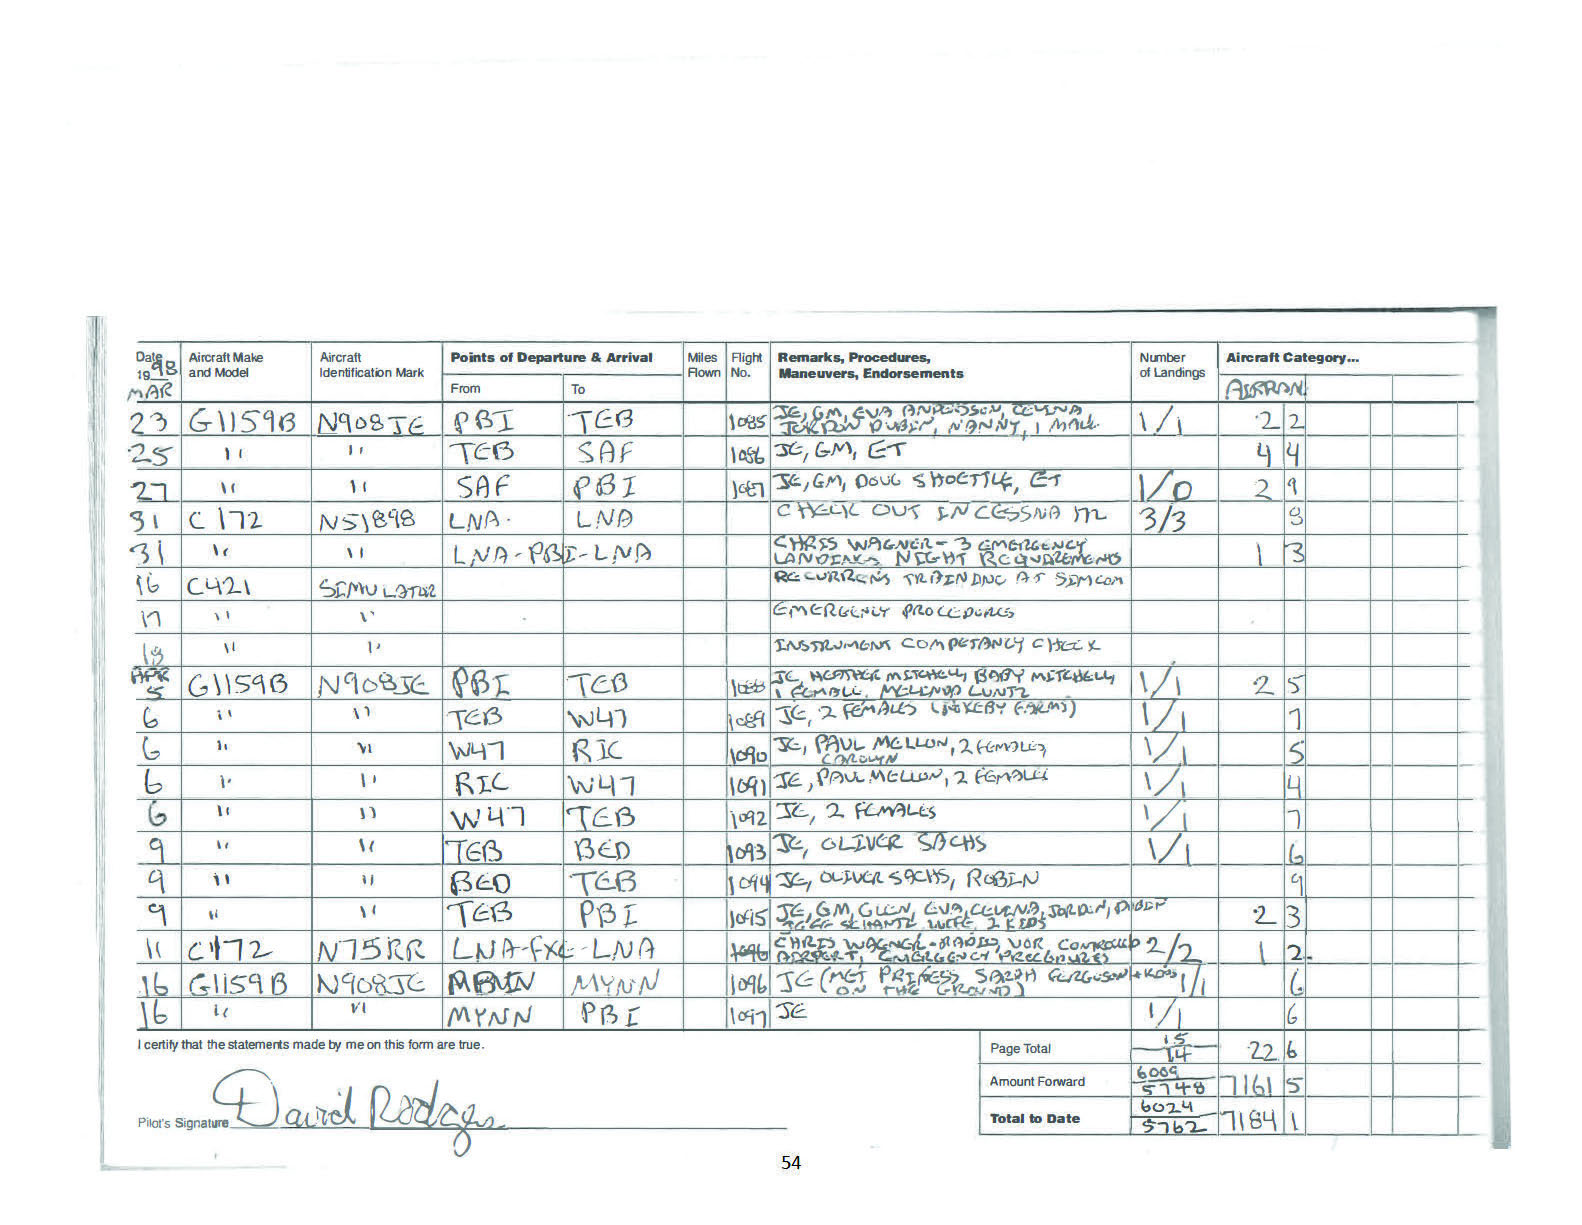 Date Aircraft Make Aircraft Points of Departure & Arrival Miles Flight Remarks, Procedures, Number Aircraft Category...
1998 and Model Identification Mark From To Flown No. Maneuvers, Endorsements of Landings
MAR
23 G1159B N908JE PBI TEB 1085 JE, GM, EVA ANDERSSON, CELINA 1/1 2 2
JORDON DUBIN, NANNY, 1 MALE
25 " " TEB SAF 1086 JE, GM, ET 4 4
27 " " SAF PBI 1087 JE, GM, DOUG SHOETTLE, ET 1/0 2 9
31 C172 N51898 LNA LNA CHECK OUT IN CESSNA 172 3/3 8
31 " " LNA-PBI-LNA CHRIS WAGNER - 3 EMERGENCY 1 3
LANDINGS NIGHT REQUIREMENTS
16 C421 SIMULATOR TRAINING AT SIMCOM
17 " " EMERGENCY PROCEDURES
18 " " INSTRUMENT COMPETANCY CHECK
APR
5 G1159B N908JE PBI TEB 1088 JE, HEATHER MITCHELL, BABY MITCHELL, 1/1 2 5
1 FEMALE, MELINDA LUNTZ
6 " " TEB W47 1089 JE, 2 FEMALES 1/1 7
6 " " W47 RIC 1090 JE, PAUL MELLON, 2 FEMALES, 1/1 5
CAROLYN
6 " " RIC W47 1091 JE, PAUL MELLON, 2 FEMALES 1/1 4
6 " " W47 TEB 1092 JE, 2 FEMALES 1/1 7
9 " " TEB BED 1093 JE, OLIVER SACHS 1/1 6
9 " " BED TEB 1094 JE, OLIVER SACHS, ROBIN 9
9 " " TEB PBI 1095 JE, GM, GLEN, EVA, CELINA, JORDEN, DUBIN 2 3
JEFF SCHANTZ WIFE, 2 KIDS
11 C172 N75RR LNA-FXE-LNA 1096 CHRIS WAGNER - RADIO, VOR, CONTROLLED 2/2 1 2
AIRPORT, EMERGENCY PROCEDURES
16 G1159B N908JE MYNN 1096 JE (MET PRINCESS SARAH FERGUSON + KIDS 1/1 6
ON THE GROUND)
16 " " MYNN PBI 1097 JE 1/1 6
I certify that the statements made by me on this form are true.
Page Total 15/14 22 6
Amount Forward 6009/5748 7161 5
Total to Date 6024/5762 7184 1
Pilot's Signature David Rodgers
54